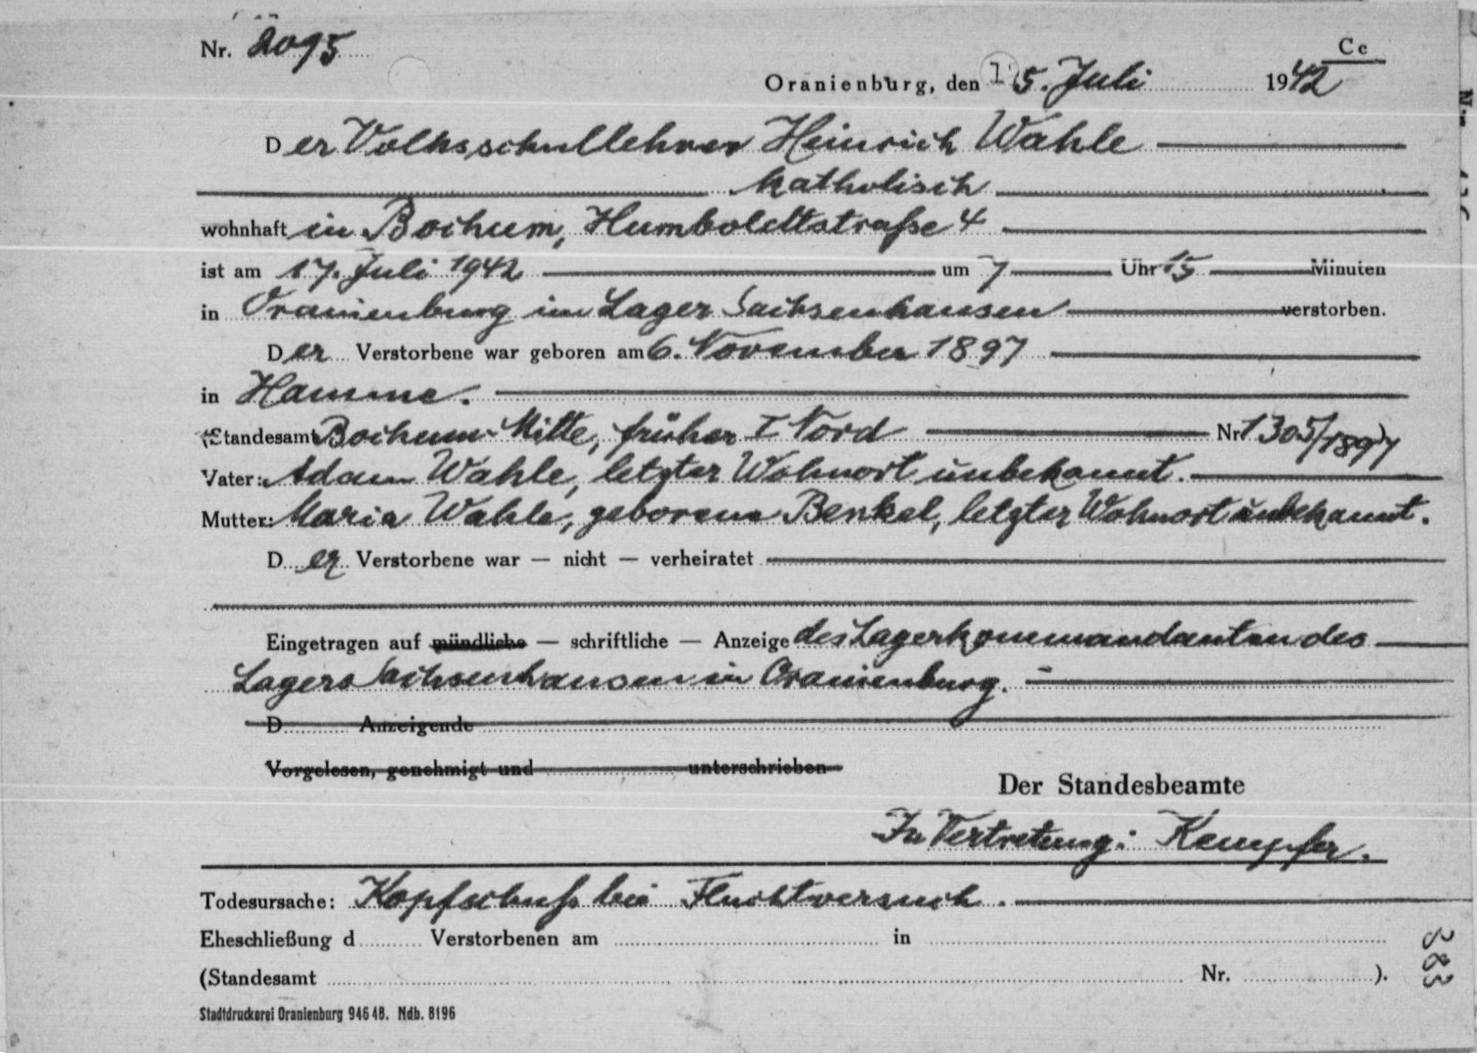 Nr. 2095
Cc
Oranienburg, den 15. Juli 1942
Der Volksschullehrer Heinrich Wahle
katholisch
wohnhaft in Bochum, Humboldtstraße 4
ist am 17. Juli 1942 um 7 Uhr 15 Minuten
in Oranienburg im Lager Sachsenhausen verstorben.
Der Verstorbene war geboren am 6. November 1897
in Hamme.
(Standesamt Bochum-Mitte, früher I Nord Nr. 1305/1897)
Vater: Adam Wahle, letzter Wohnort unbekannt.
Mutter: Maria Wahle, geborene Benkel, letzter Wohnort unbekannt.
Der Verstorbene war — nicht — verheiratet
Eingetragen auf mündliche — schriftliche — Anzeige des Lagerkommandanten des
Lagers Sachsenhausen in Oranienburg.
D Anzeigende
Vorgelesen, genehmigt und unterschrieben
Der Standesbeamte
In Vertretung: Kempfer.
Todesursache: Kopfschuß bei Fluchtversuch.
Eheschließung d Verstorbenen am in
(Standesamt Nr. ).
383
Stadtdruckerei Oranienburg 946 48. Ndb. 8196